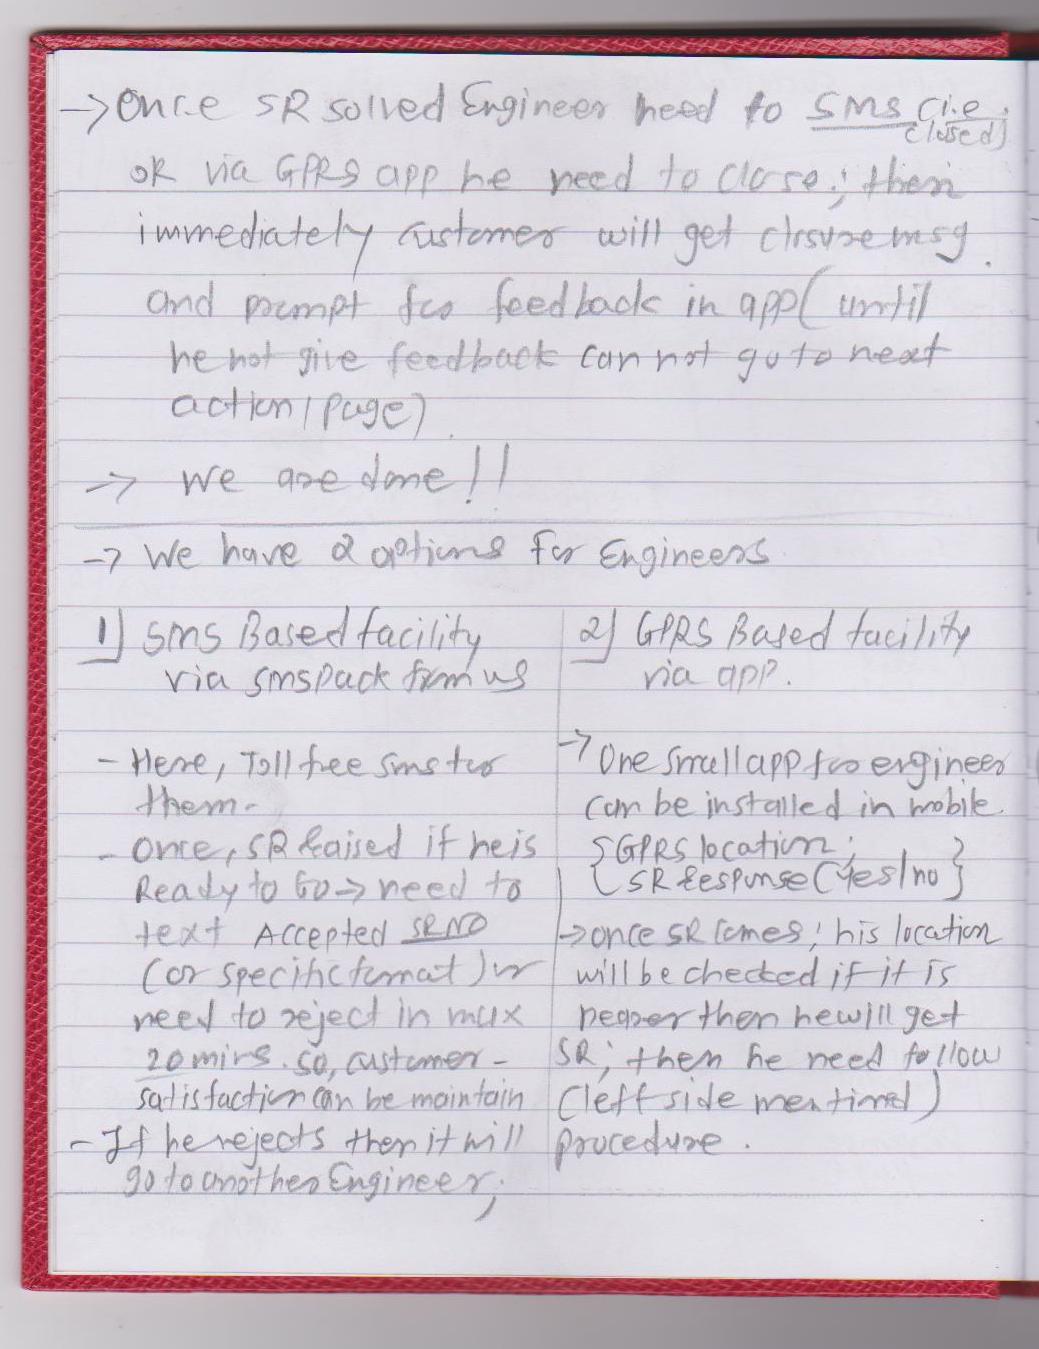 → Once SR solved Engineer need to SMS (i.e.
closed)
OR via GPRS app he need to close; then
immediately customer will get closure msg.
and prompt for feedback in app (until
he not give feedback can not go to next
action / page)
→ We are done!!
→ We have 2 options For Engineers
1) SMS Based facility
via sms pack from us
- Here, Toll free sms for
them.
- Once, SR Raised if he is
Ready to Go → need to
text Accepted SR NO
(or specific format) or
need to reject in max
20 mins. so, customer -
satisfaction can be maintain
- If he rejects then it will
go to another Engineer;
2) GPRS Based facility
via app.
→ One small app for engineer
can be installed in mobile.
{ GPRS location;
SR Response (Yes/no }
→ once SR comes; his location
will be checked if it is
nearer then he will get
SR; then he need follow
(left side mentioned)
procedure.